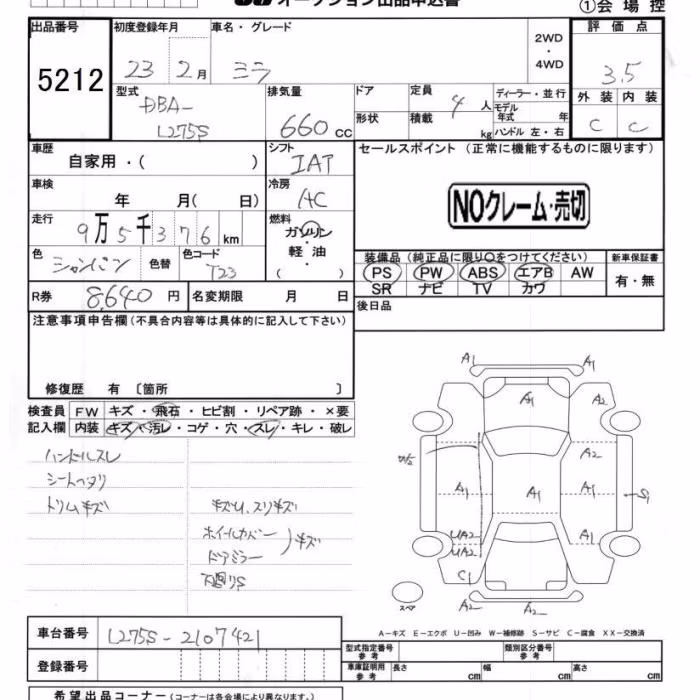 オークション出品申込書
①会場控
出品番号
5212
初度登録年月
23 2月
車名・グレード
ミラ
2WD
・
4WD
評価点
3.5
外装 内装
C C
型式
DBA-
L275S
排気量
660 CC
ドア
定員
4 人
形状
積載
kg
ディーラー・並行
モデル年式 年
ハンドル 左・右
車歴
自家用・( )
シフト
IAT
セールスポイント (正常に機能するものに限ります)
NOクレーム・売切
車検
年 月( 日)
冷房
AC
走行
9万5千376km
燃料
ガソリン
軽油
( )
色
シャンパン
色替
色コード
T23
装備品 (純正品に限り○をつけてください)
PS PW ABS エアB AW
SR ナビ TV カワ
新車保証書
有・無
R券 8,640円
名変期限 月 日
後日品
注意事項申告欄(不具合内容等は具体的に記入して下さい)
修復歴 有 〔箇所 〕
検査員記入欄
FW キズ・飛石・ヒビ割・リペア跡・×要
内装 キズ・汚レ・コゲ・穴・スレ・キレ・破レ
ハンドルスレ
シートヘタリ
トリムキズ
キズU、スリキズ
ホイールカバー
ドアミラー
)キズ
下廻りS
A1
A1
A1 A2
A2
A1 A1 A1 S1
UA2 A1
UA2
C1
A2 A2
スペア
A-キズ E-エクボ U-凹み W-補修跡 S-サビ C-腐食 XX-交換済
車台番号
L275S-2107421
登録番号
型式指定番号 参考
類別区分番号 参考
車庫証明用 参考
長さ cm
幅 cm
高さ cm
希望出品コーナー(コーナーは各会場により異なります。)